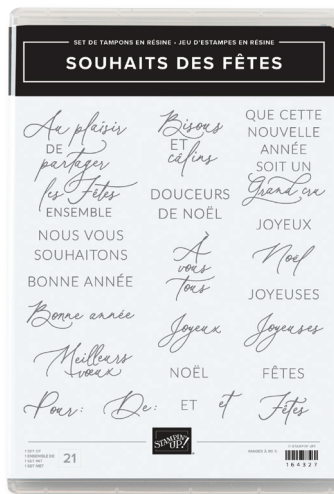 SET DE TAMPONS EN RÉSINE • JEU D'ESTAMPES EN RÉSINE
SOUHAITS DES FÊTES
Au plaisir
DE
partager
les Fêtes
ENSEMBLE
NOUS VOUS
SOUHAITONS
BONNE ANNÉE
Bonne année
Meilleurs
vœux
Pour:
De:
Bisous
ET
câlins
DOUCEURS
DE NOËL
À
vous
tous
Joyeux
NOËL
ET
et
QUE CETTE
NOUVELLE
ANNÉE
SOIT UN
Grand cru
JOYEUX
Noël
JOYEUSES
Joyeuses
FÊTES
Fêtes
21
STAMPIN' UP!
© STAMPIN' UP!
164327